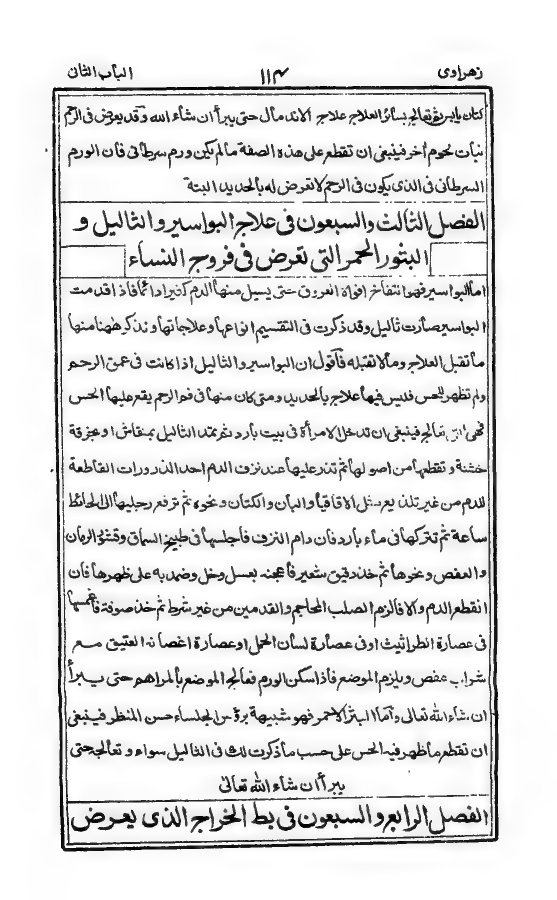 زهراوى ١١٤ الباب الثانى
كتان يابس وتعالج بسائر العلاج علاج الاندمال حتى يبرأ ان شاء الله وقد يعرض فى الرحم
نبات لحوم أخر فينبغى ان تقطع على هذه الصفة مالم يكن ورم سرطانى فان الورم
السرطانى فى الذى يكون فى الرحم لا تعرض له بالحديد البتة
الفصل الثالث والسبعون فى علاج البواسير والثاليل و
البثور الحمر التى تعرض فى فروج النساء
اما البواسير فهو انتفاخ افواه العروق حتى يسيل منها الدم كثيرا دائما فاذا قدمت
البواسير صارت ثاليل وقد ذكرت فى التقسيم انواعها وعلاماتها ونذكر ههنا منها
ما تقبل العلاج وما لا تقبله فأقول ان البواسير والثاليل اذا كانت فى عمق الرحم
ولم تظهر للحس فليس فيها علاج بالحديد ومتى كان منها فى فم الرحم يقع عليها الحس
فهى التى تعالج فينبغى ان تدخل الامرأة فى بيت بارد ثم تمد الثاليل بمنقاش او بخرقة
خشنة وتقطعها من اصولها ثم تذر عليها عند نزف الدم احد الذرورات القاطعة
للدم من غير تلذيع مثل الاقاقيا والبان والكتان ونحوه ثم ترفع رجليها الى الحائط
ساعة ثم تتركها فى ماء بارد فان دام النزف فأجلسها فى طبيخ السماق وقشور الرمان
والعفص ونحوها ثم خذ دقيق شعير فأعجنه بعسل وخل وضمد به على ظهرها فان
انقطع الدم والا فالزم الصلب المحاجم والقدمين من غير شرط ثم خذ صوفة فأغمسها
فى عصارة الطراثيث او فى عصارة لسان الحمل او عصارة اغصانه العتيق مع
شراب عفص ويلزم الموضع فاذا سكن الورم فعالج الموضع بألمراهم حتى يبرأ
ان شاء الله تعالى وأما البثر الاحمر فهو شبيهة برؤس الجلساء حسن المنظر فينبغى
ان تقطع ما ظهر فيه الحس على حسب ما ذكرت لك فى الثاليل سواء وتعالجه حتى
يبرأ ان شاء الله تعالى
الفصل الرابع والسبعون فى بط الخراج الذى يعرض